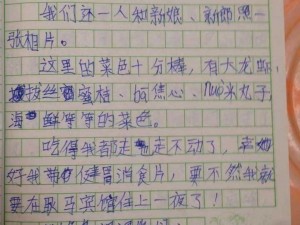 我们还一人和新娘、新郎照一
张相片。
这里的菜色十分棒,有大龙虾,
拔丝蜜桔、ba焦心、nuò米丸子,
海鲜等等的菜色。
吃得我都走走不动了,幸
好我带健胃消食片,要不然我就
要在驭马宾馆住上一夜了!